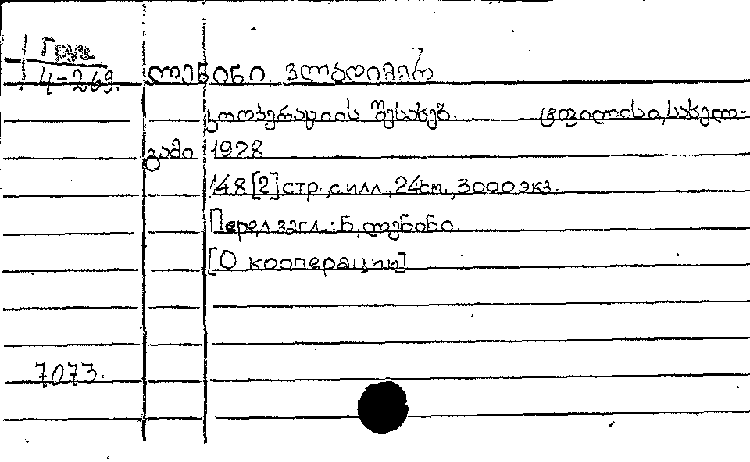 Груз
4-269.
ლენინი ვლადიმერ
კოოპერაციის შესახებ. ტფილისი, სახელ-
გამი 1928
148 [2] стр., с илл., 24см., 3000 экз.
Перед загл.: Ნ. ლენინი.
[О кооперации]
7073.